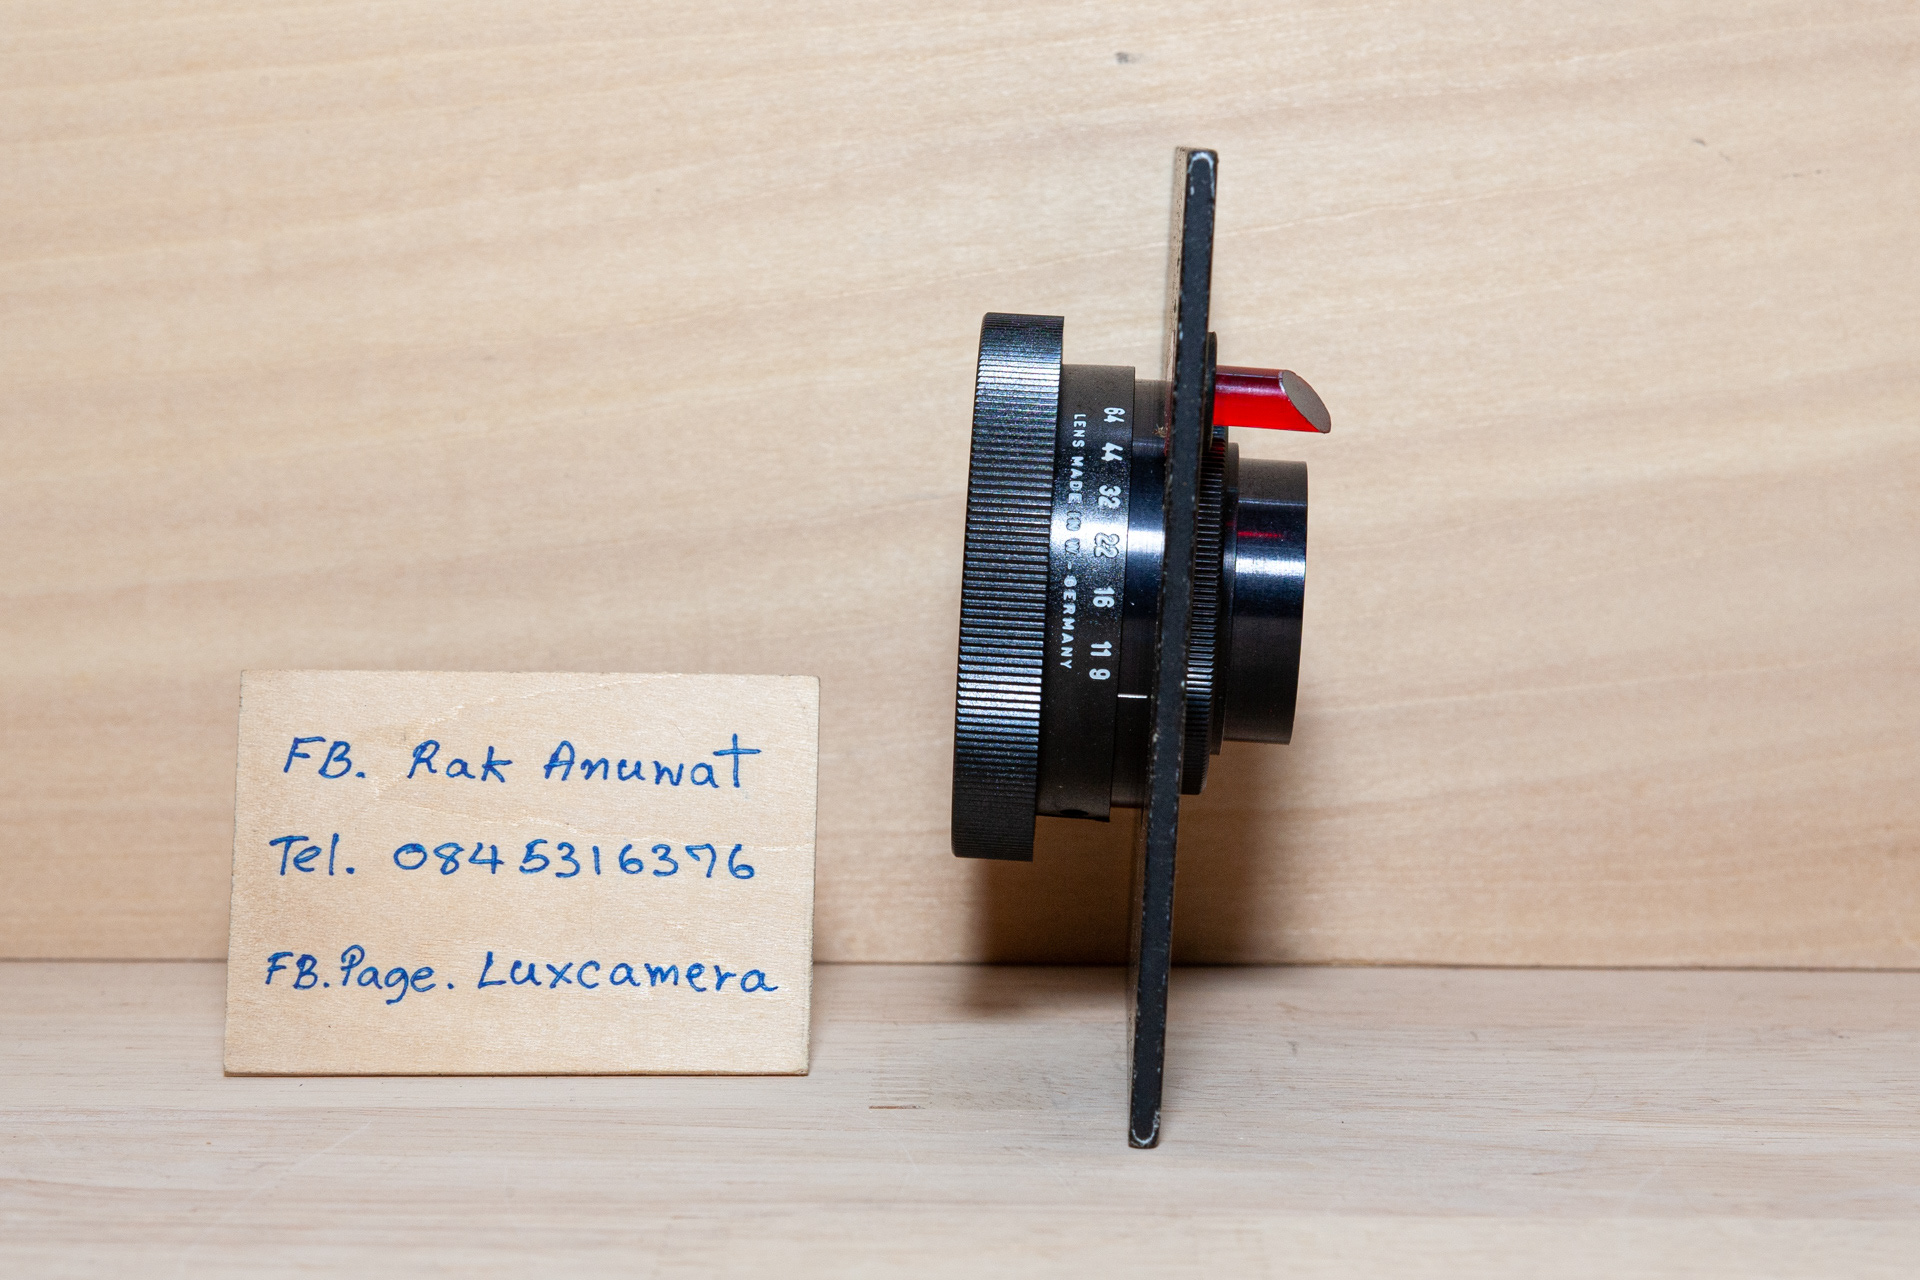 FB. Rak Anuwat
Tel. 0845316376
FB.Page. Luxcamera
64 44 32 22 16 11 9
LENS MADE IN W.-GERMANY